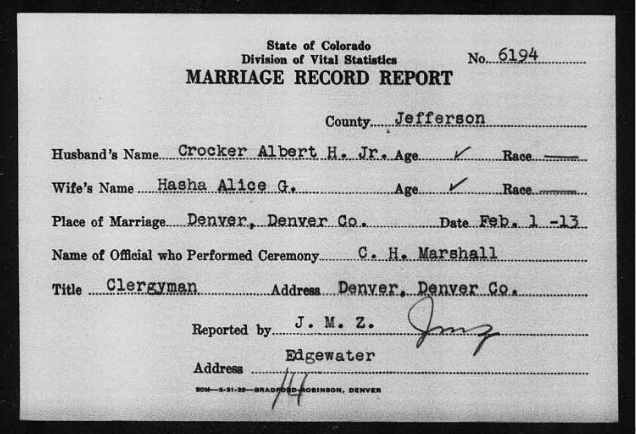 State of Colorado
Division of Vital Statistics
No. 6194
MARRIAGE RECORD REPORT
County Jefferson
Husband's Name Crocker Albert H. Jr. Age ✓ Race —
Wife's Name Hasha Alice G. Age ✓ Race —
Place of Marriage Denver, Denver Co. Date Feb. 1 -13
Name of Official who Performed Ceremony C. H. Marshall
Title Clergyman Address Denver, Denver Co.
Reported by J. M. Z. Jmz
Address Edgewater
50M—8-21-39—BRADFORD-ROBINSON, DENVER
14